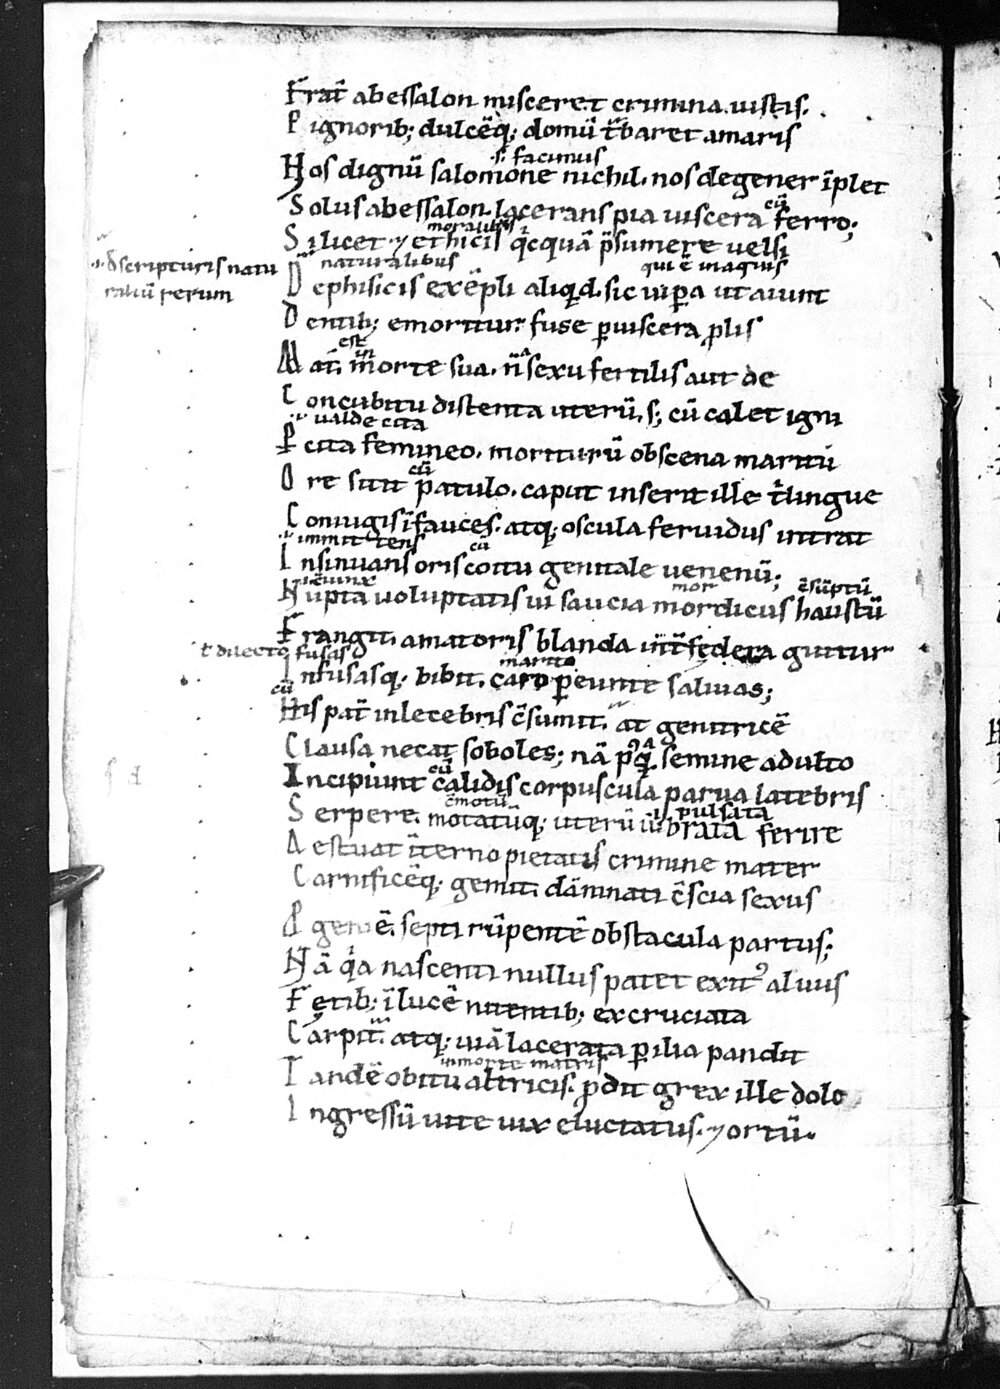 Frat̄ abessalon misceret crimina iustis.
Pignorib; dulcēq; domū t̄baret amaris
.s. facinus
Hos dignū salomone nichil. nos degener īplet
cū
Solus abessalon. lacerans pia uiscera ferro;
moralibus
Si licet ⁊ ethicis qͥcquā p̄sumere uelsi
.i. d̄ scripturis natu
naturalibus
qui ē magnis
raliū rerum
De phisicis exēpli aliqͥd. sic uip̱a ut aiunt
Dentib; emoritur fuse p̱ uiscera p̱lis
est
in
Mat̄ morte sua. n̄ sexu fertilis aut de
Concubitu distenta uterū. s; cū calet igni
.i. ualde cita
P̱cita femineo. moriturū obscena maritū
cū
Ore sitit patulo. caput inserit ille t̄lingue
Coniugis ī fauces. atq; oscula feruidus intrat
.i. immittens
cū
Insinuans oris coitu genitale uenenū;
mor
c̄sūptū
Nupta uoluptatis ui saucia mordicus haustū
Frangit amatoris blanda int̄ fędera guttur
ł dilecto
fusas
marito
Infusasq; bibit caro p̱eunte saliuas;
cū
His pat̄ inlecebris c̄sumit. at genitricē
Clausa necat soboles; nā p̱qͣ semine adulto
cū
Incipiunt calidis corpuscula parua latebris
c̄motū
.i. pulsata
Serpere. motatūq; uterū uibrata ferire
Aestuat īterno pietatis crimine mater
Carnificēq; gemit dāmnati c̄scia sexus
Progeniē. septi rūpentē obstacula partus;
Nā qͥa nascenti nullus patet exitꝰ aluus
Fętib; ī lucē nitentib; excruciata
Carpit. atq; uiā lacerata p̱ ilia pandit
in morte matris
Tandē obitu altricis. p̱dit grex ille dolo
Ingressū uite uix eluctatus. ⁊ ortū.